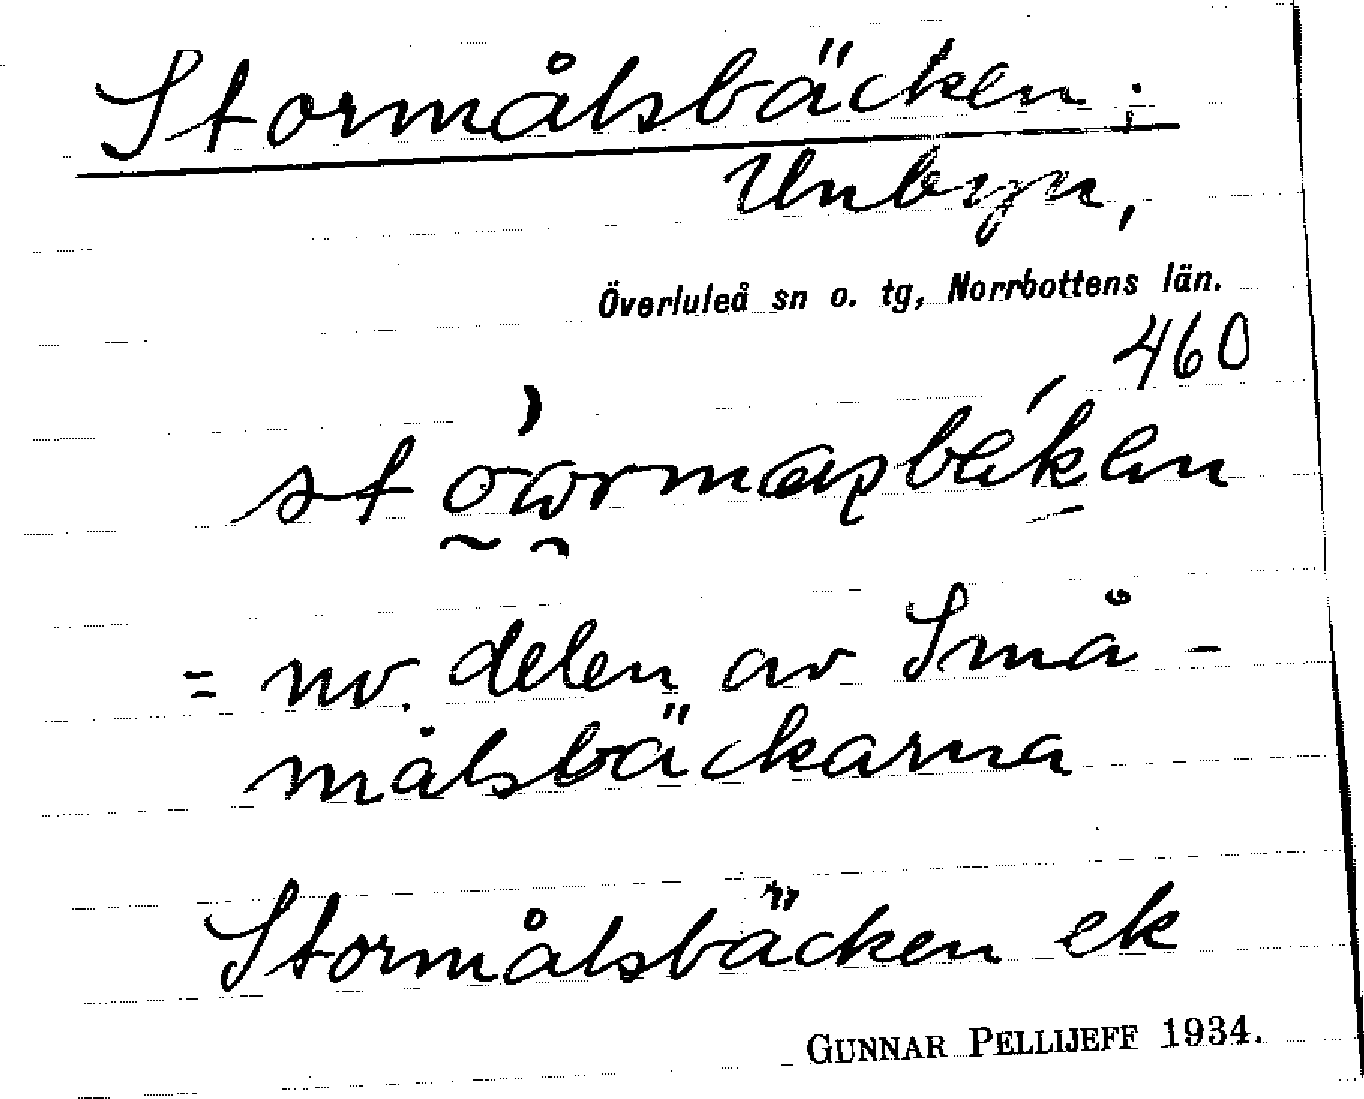 Stormålsbäcken;
Unbyn,
Överluleå sn o. tg, Norrbottens län.
460
= nv. delen av Små-
målsbäckarna
Stormålsbäcken ek
GUNNAR PELLIJEFF 1934.